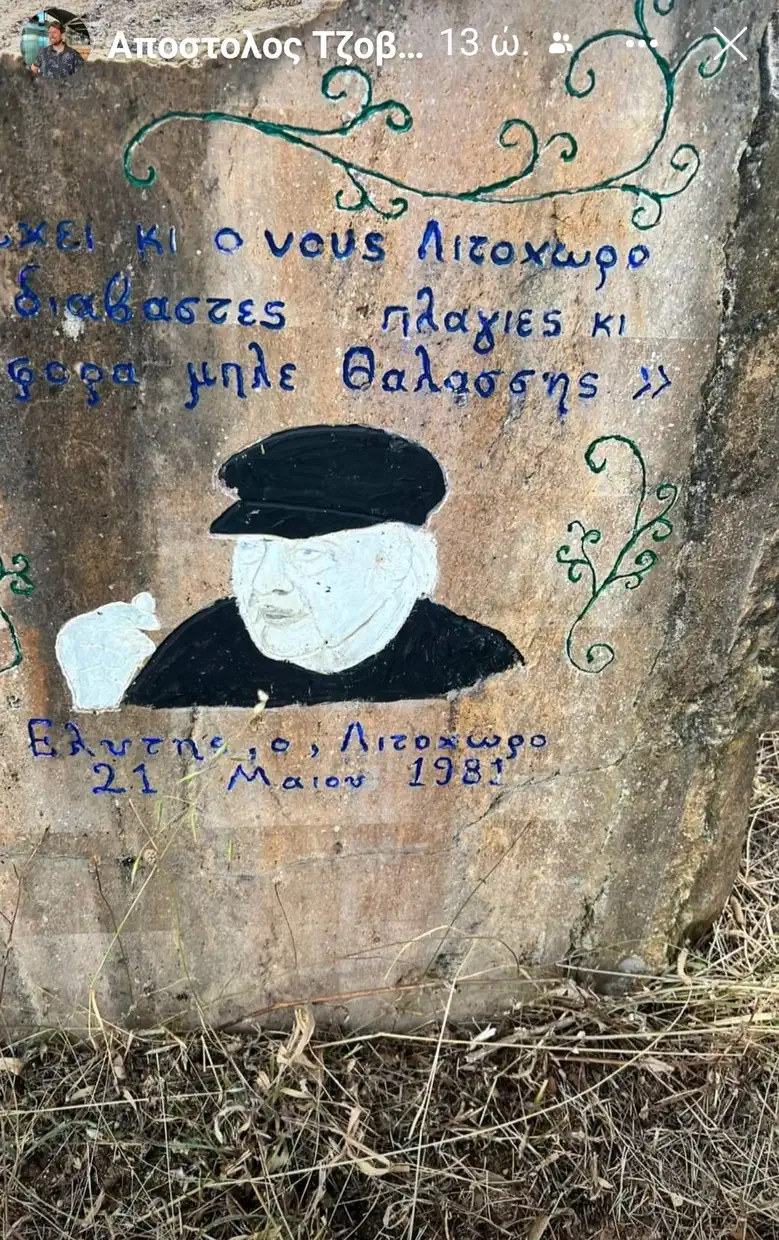 Αποστολος Τζοβ... 13 ώ.
χει κι ο νους Λιτοχωρο
διαβαστες πλαγιες κι
φορα μηλε Θαλασσης »
Ελυτης, ο, Λιτοχωρο
21 Μαιου 1981